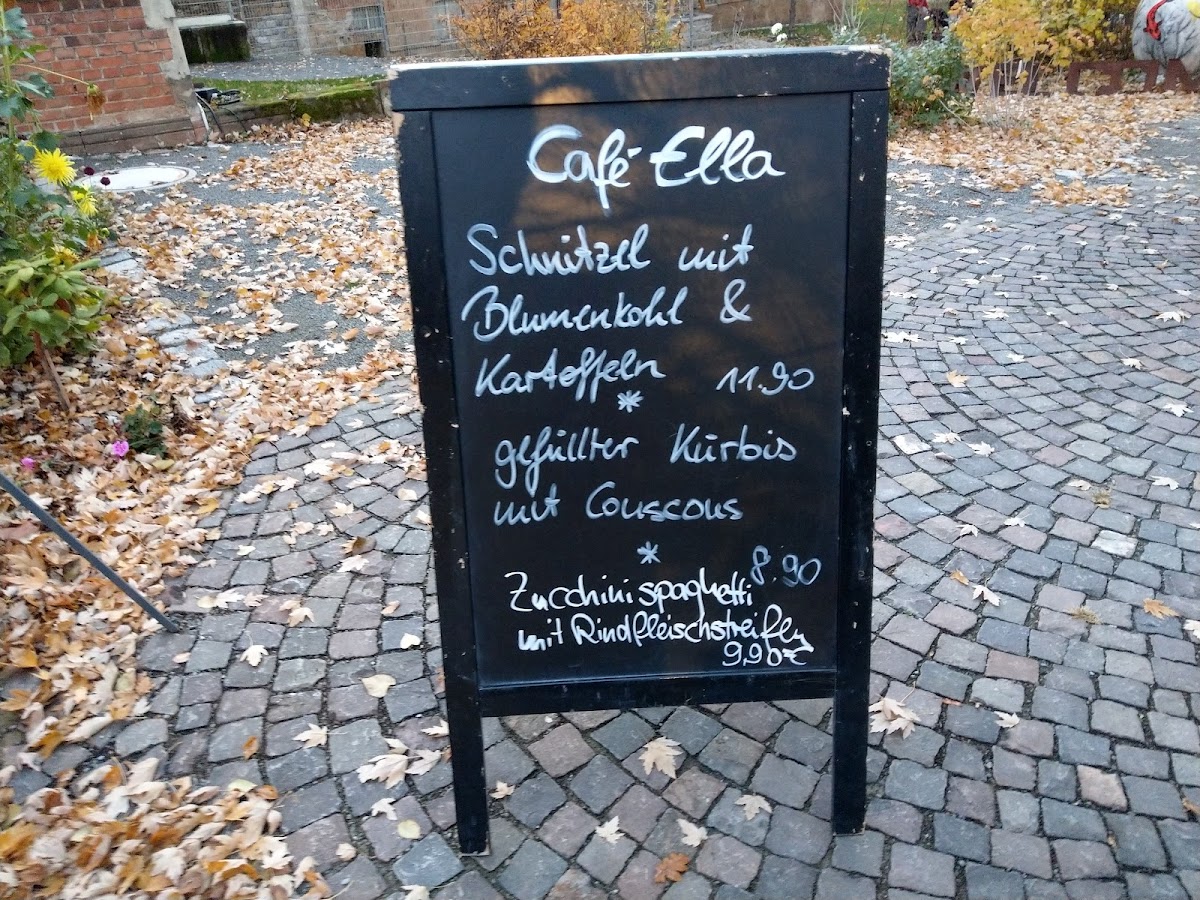 Café Ella
Schnitzel mit
Blumenkohl &
Kartoffeln 11.90
*
gefüllter Kürbis
mit Couscous
*
8.90
Zucchinispaghetti
mit Rindfleischstreifen
9,90€